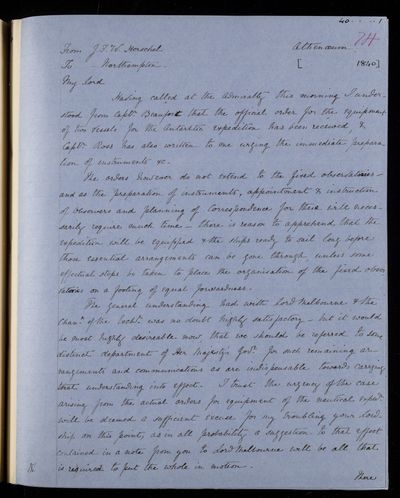 40 . . . . 1
74
From J.F.W. Herschel Athenæum
To Northampton [ 1840]
My Lord
Having called at the Admiralty this morning I under-
stood from Captn Beaufort that the official order for the equipment
of two vessels for the Antarctic expedition has been received &
Captn Ross has also written to me urging the immediate prepara-
tion of instruments &c.
The orders however do not extend to the fixed observatories -
and as the preparation of instruments, appointment & instruction
of observers and planning of correspondence for these will neces-
sarily require much time - there is reason to apprehend that the
expedition will be equipped & the ships ready to sail long before
those essential arrangements can be gone through unless some
effectual steps be taken to place the organisation of the fixed obser-
vatories on a footing of equal forwardness.
The general understanding had with Lord Melbourne & the
Chanr of the Exchr was no doubt highly satisfactory - but it would
be most highly desireable now that we should be referred to some
distinct department of Her Majesty's Govt for such remaining ar-
rangements and communications as are indispensable towards carrying
that understanding into effect. I trust the urgency of the case
arising from the actual orders for equipment of the nautical expedn
will be deemed a sufficient excuse for my troubling your Lord-
ship on this point, as in all probability a suggestion to that effect
contained in a note from you to Lord Melbourne will be all that
is required to put the whole in motion.
There